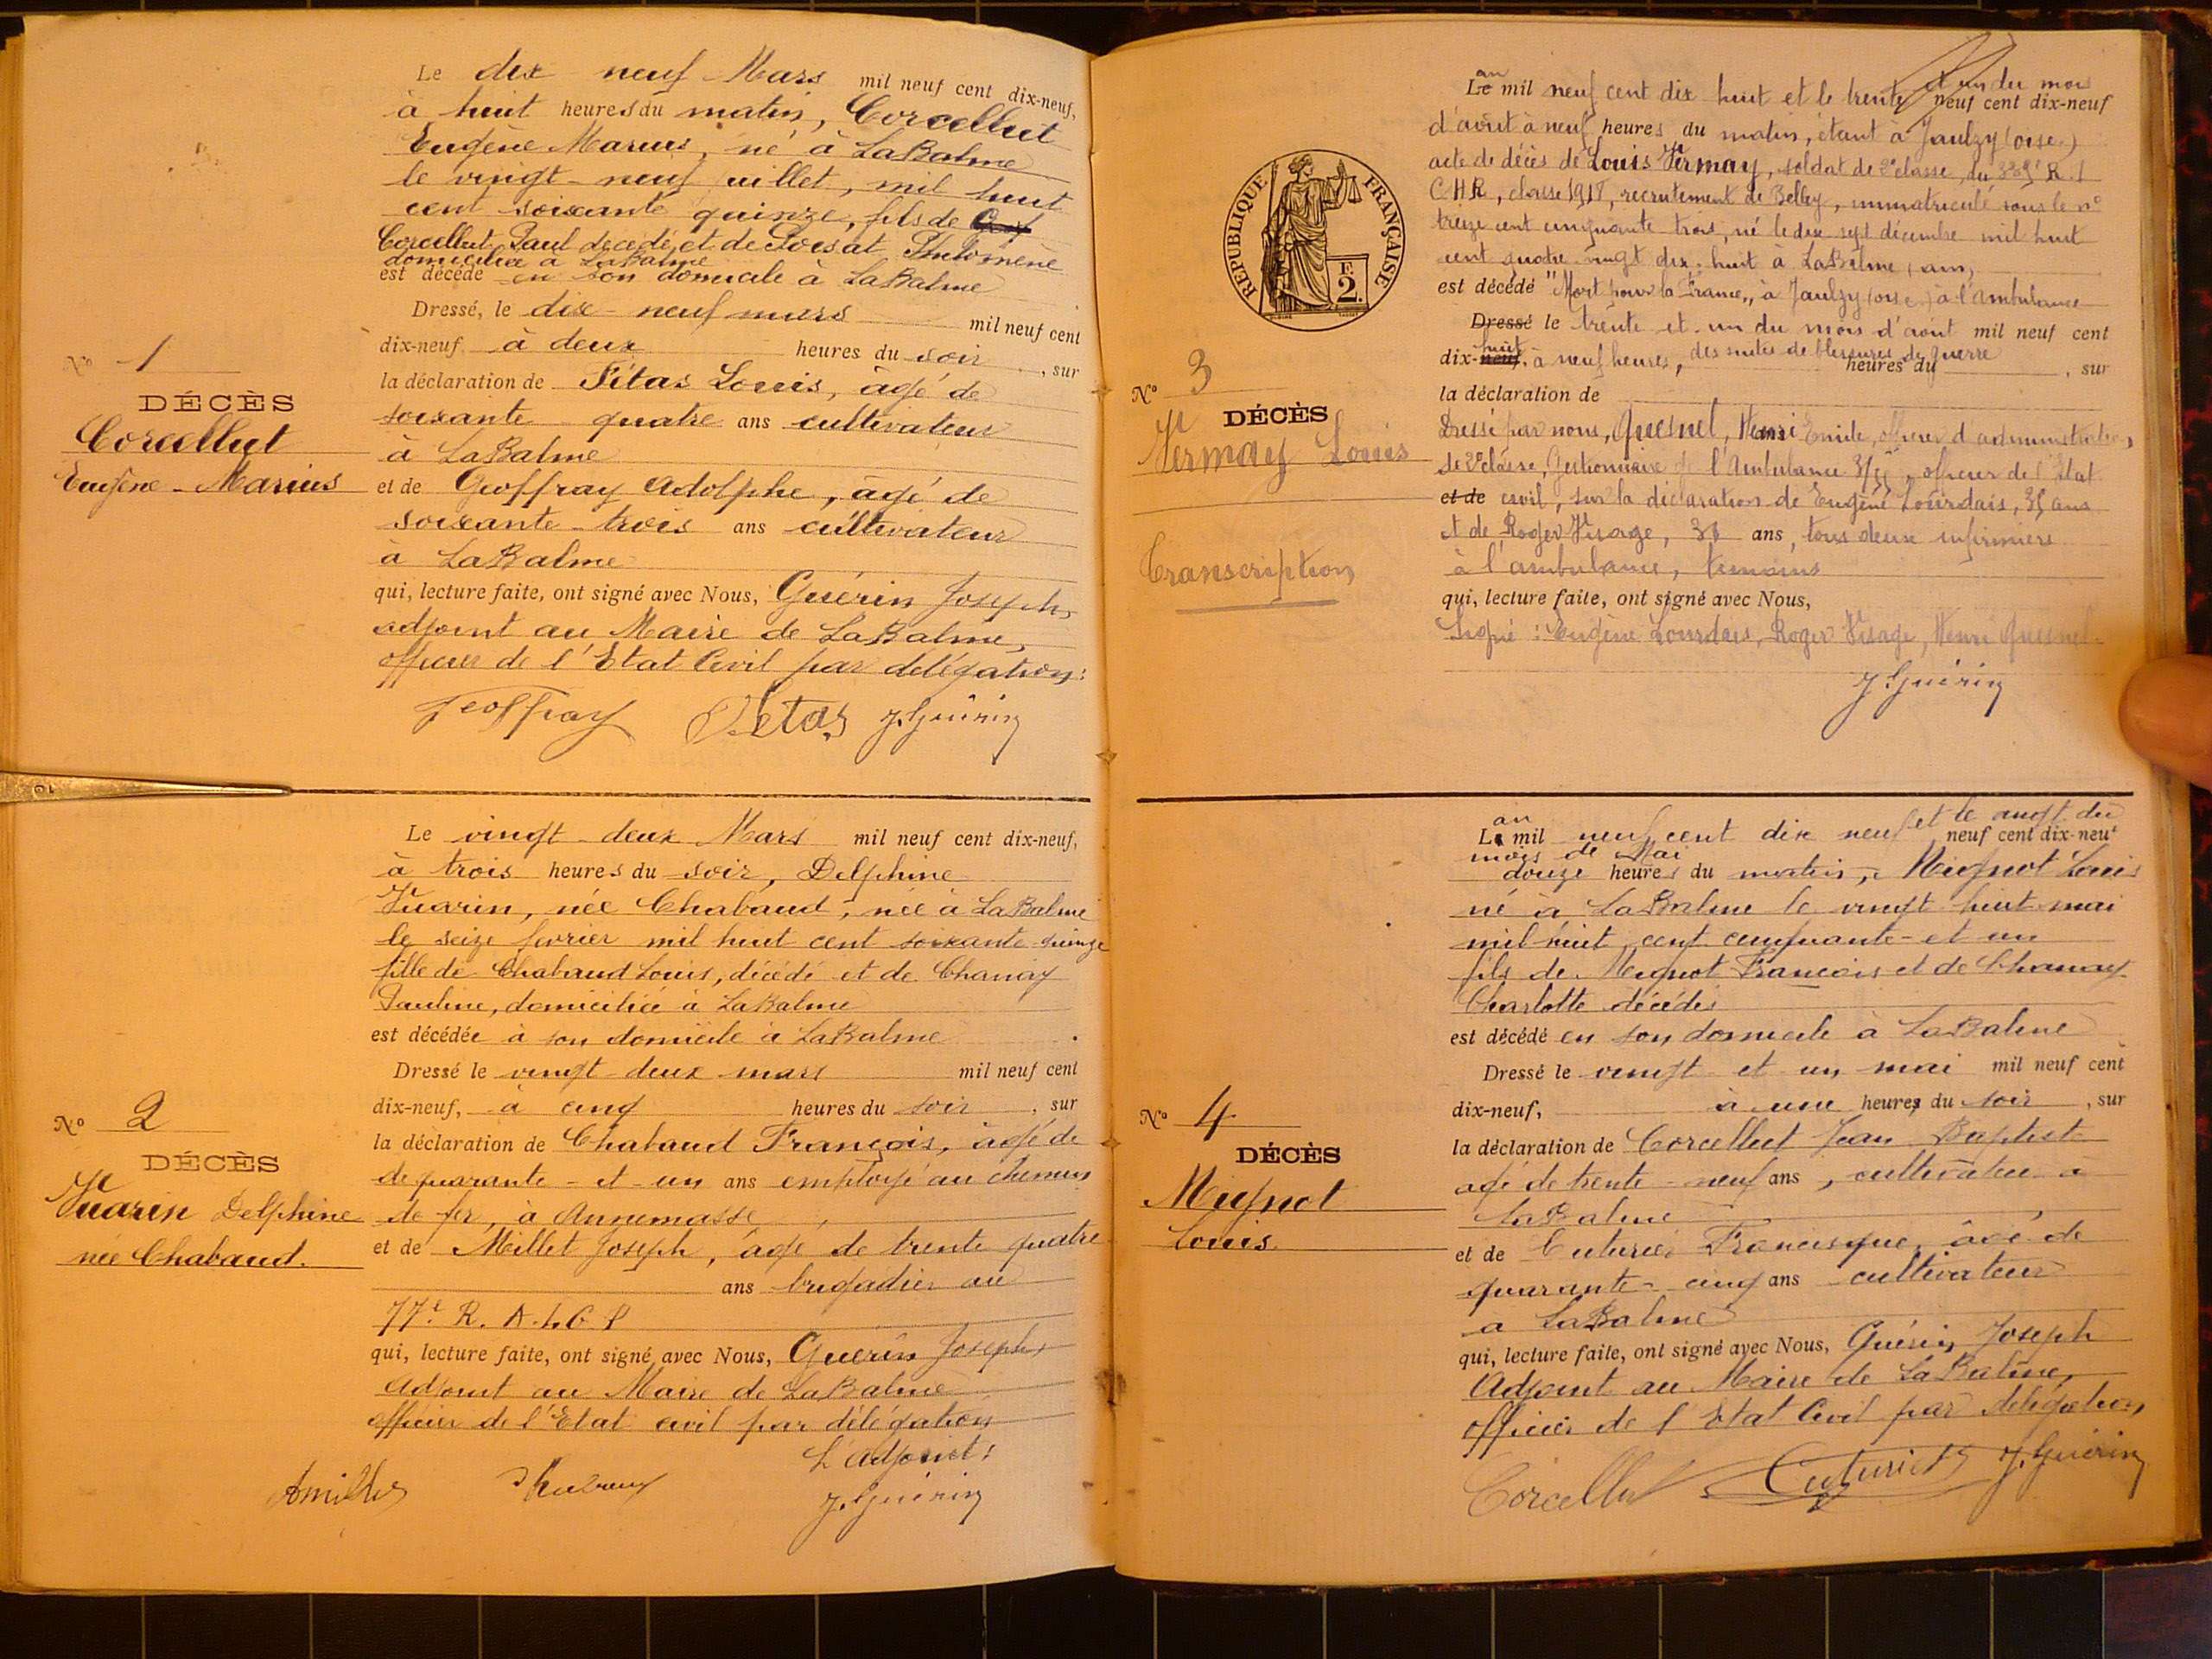 Le dix neuf Mars mil neuf cent dix-neuf,
à huit heures du matin, Corcellut
Eugène Marius, né à LaBalme
le vingt-neuf juillet, mil huit
cent soixante quinze, fils de
Corcellut Paul décédé et de Poisat Philomène
domiciliée à LaBalme
est décédé en son domicile à LaBalme
Dressé, le dix-neuf mars mil neuf cent
dix-neuf à deux heures du soir, sur
la déclaration de Fétas Louis, âgé de
soixante quatre ans cultivateur
à LaBalme
et de Geoffray Adolphe, âgé de
soixante-trois ans cultivateur
à LaBalme
qui, lecture faite, ont signé avec Nous, Guérin Joseph,
adjoint au Maire de LaBalme,
officier de l'Etat Civil par délégation:
Geoffray Fétas J. Guérin
No 1
DÉCÈS
Corcellut
Eugène-Marius
Le vingt-deux Mars mil neuf cent dix-neuf,
à trois heures du soir, Delphine
Vuarin, née Chabaud, née à LaBalme
le seize fevrier mil huit cent soixante-quinze
fille de Chabaud Louis, décédé et de Chanay
Pauline, domiciliée à LaBalme
est décédée à son domicile à LaBalme
Dressé le vingt-deux mars mil neuf cent
dix-neuf, à cinq heures du soir, sur
la déclaration de Chabaud François, âgé de
de quarante-et-un ans employé au chemin
de fer, à Annemasse,
et de Millet Joseph, âgé de trente quatre
ans brigadier au
77e R. A. L. G. P
qui, lecture faite, ont signé avec Nous, Guérin Joseph,
Adjoint au Maire de LaBalme
officier de l'Etat civil par délégation
L'Adjoint:
J. Guérin
No 2
DÉCÈS
Vuarin Delphine
née Chabaud.
REPUBLIQUE FRANÇAISE
2 F.
L'an mil neuf cent dix huit et le trente et un du mois
neuf cent dix-neuf
d'août à neuf heures du matin, étant à Jaulzy (oise)
acte de décès de Louis Vermay, soldat de 2e classe, du R. I
C H R, classe 1918, recrutement de Belley, immatriculé sous le no
treize cent cinquante trois, né le dix sept décembre mil huit
cent quatre vingt dix-huit à LaBalme (ain,
est décédé "Mort pour la France,, à Jaulzy (oise) à l'ambulance
Dressé le trente et un du mois d'août mil neuf cent
dix-neuf huit, à neuf heures, des suites de blessures de guerre heures du , sur
la déclaration de
Dressé par nous, Quesnel, Henri Emile, officier d'administration,
de 2e classe, Gestionnaire de l'Ambulance officier de l'Etat
et de civil, sur la déclaration de Eugène Lourdais, 35 ans
et de Roger Visage, 36 ans, tous deux infirmiers
à l'ambulance, témoins
qui, lecture faite, ont signé avec Nous,
Signé: Eugène Lourdais, Roger Visage, Henri Quesnel.
J. Guérin
No 3
DÉCÈS
Vermay Louis
Transcription
L'an mil neuf cent dix neuf et le vingt du
neuf cent dix-neuf
mois de Mai
douze heures du matin, Mignot Louis
né à LaBalme le vingt huit mai
mil huit cent cinquante-et un
fils de Mignot François et de Chanay
Charlotte décédés
est décédé en son domicile à LaBalme
Dressé le vingt et un mai mil neuf cent
dix-neuf, à une heures du soir, sur
la déclaration de Corcellut Jean Baptiste
agé de trente-neuf ans, cultivateur à
LaBalme
et de Cuturier Francisque, âgé de
quarante-cinq ans cultivateur
a LaBalme
qui, lecture faite, ont signé avec Nous, Guérin Joseph
Adjoint au Maire de LaBalme,
officier de l'Etat Civil par délégation
Corcellut Cuturier J. Guérin
No 4
DÉCÈS
Mignot
Louis.